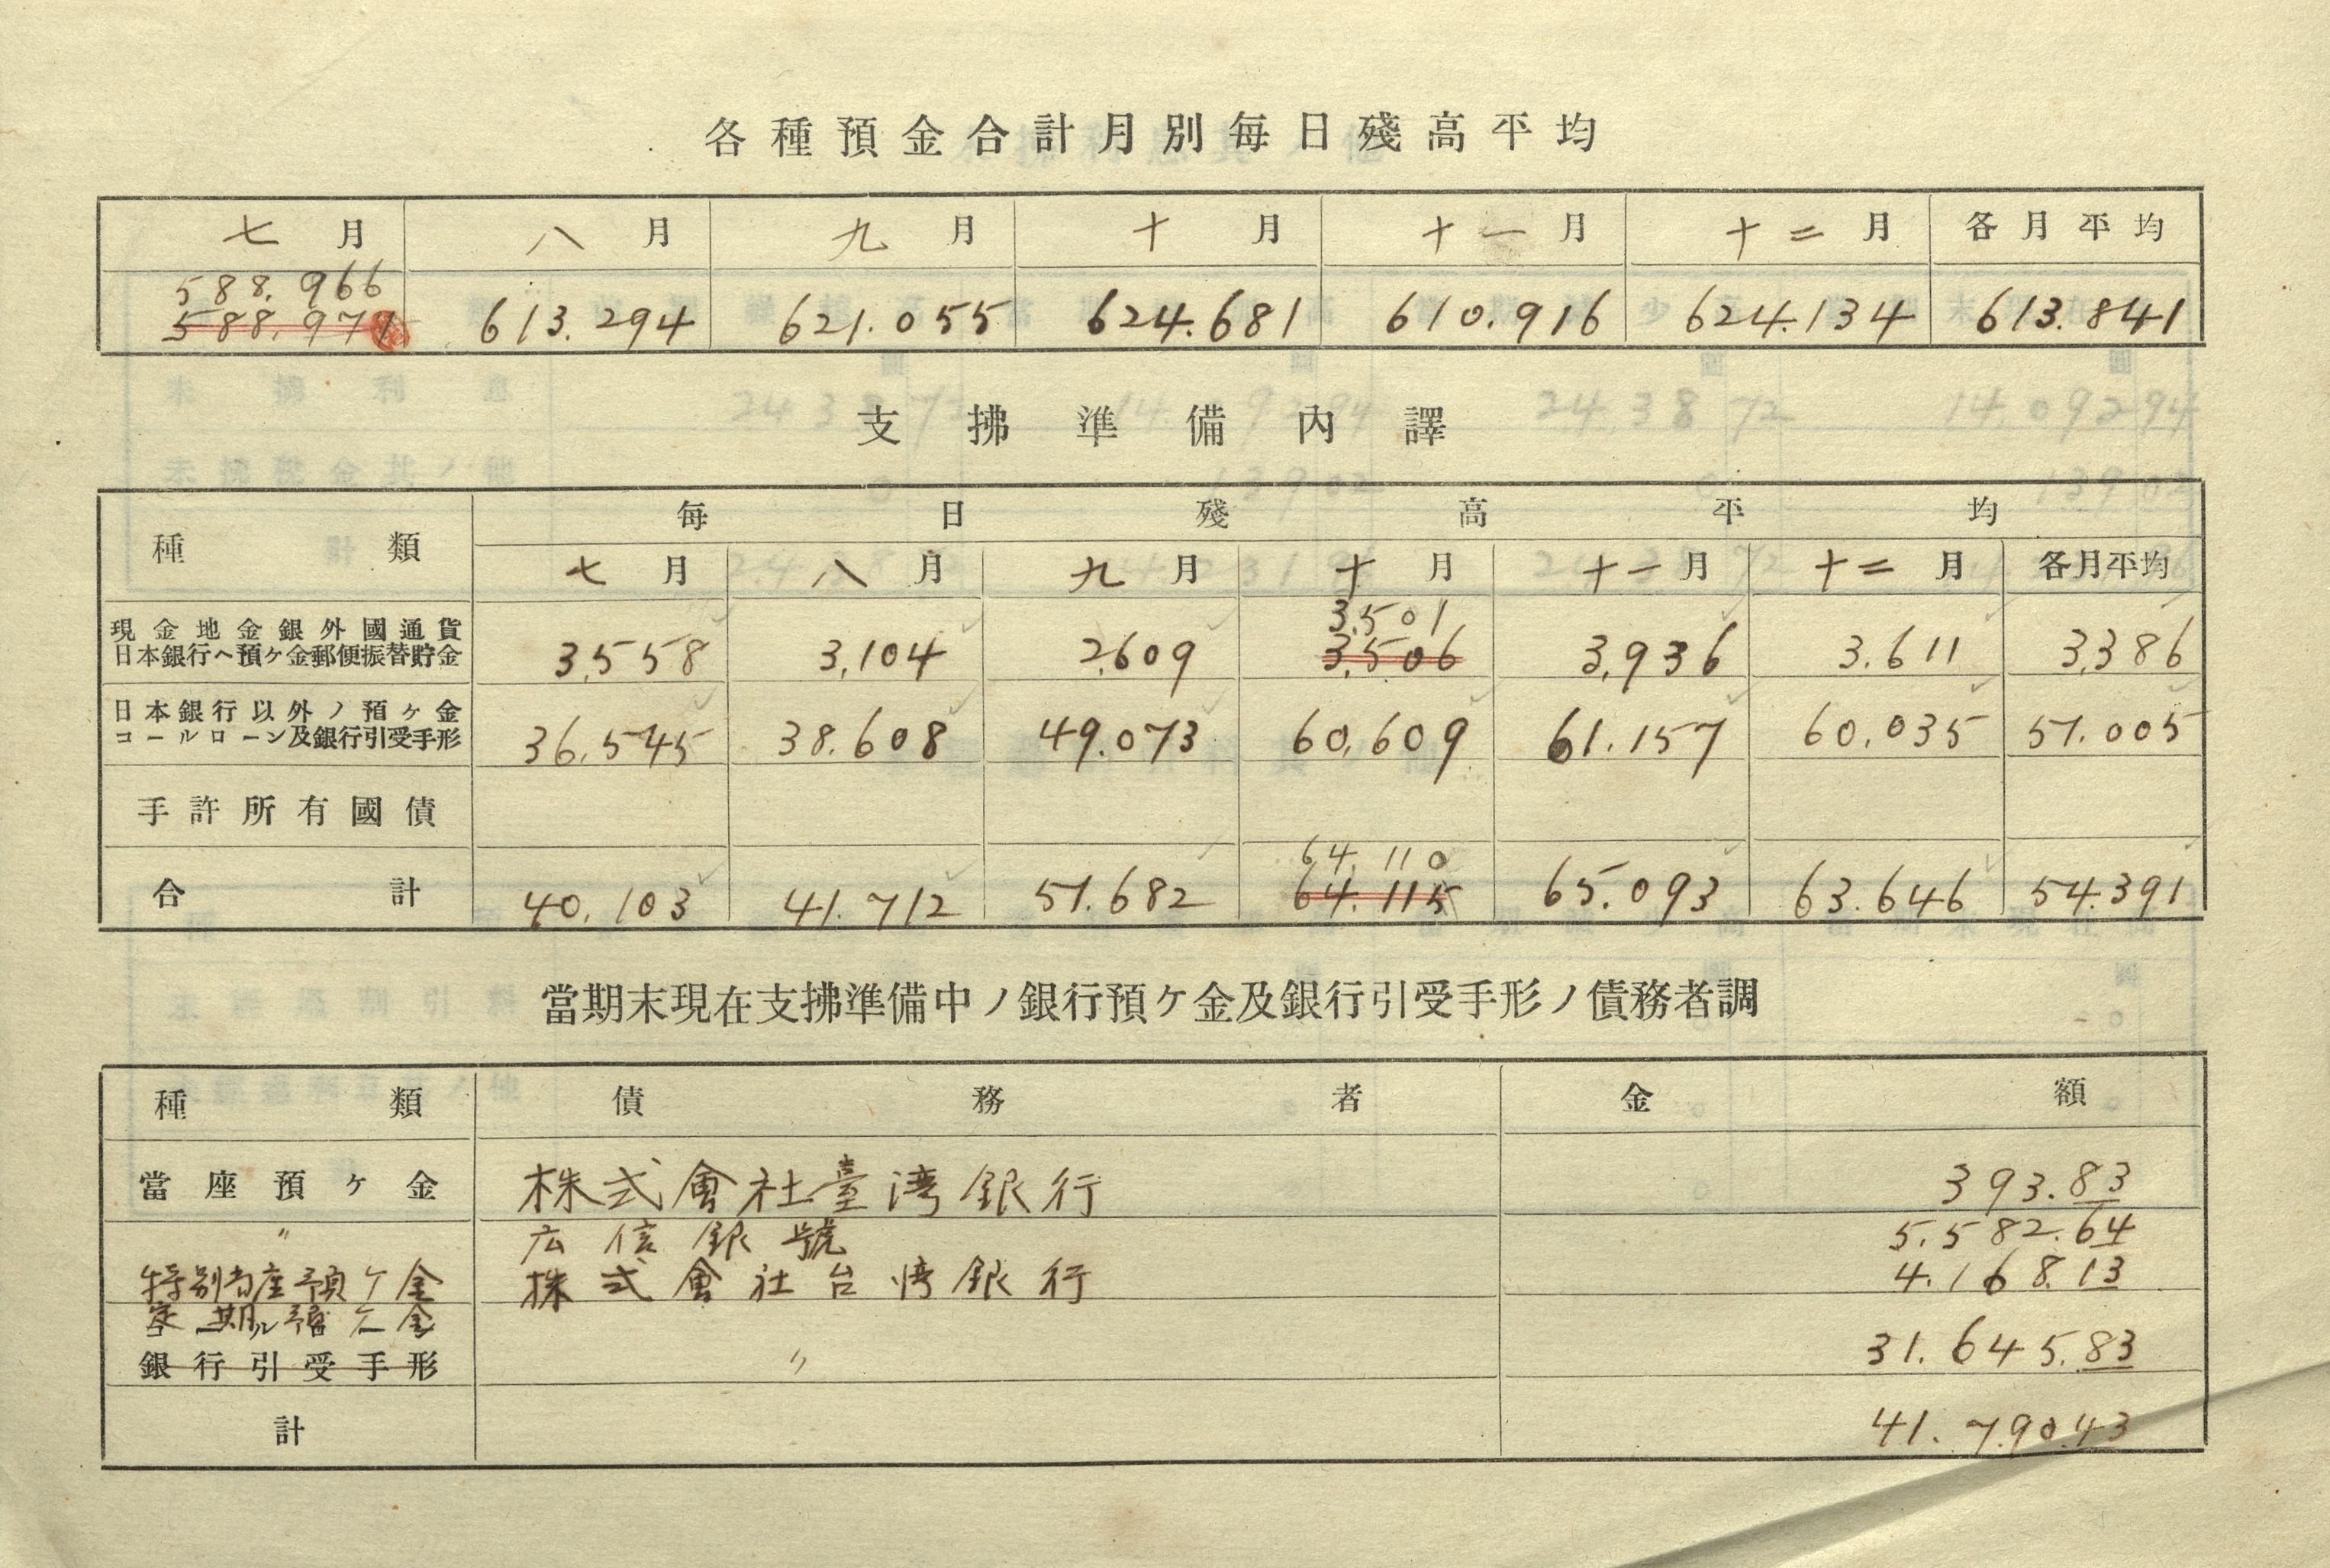 各種預金合計月別毎日殘高平均
七月 八月 九月 十月 十一月 十二月 各月平均
588.966
588.979 613.294 621.055 624.681 610.916 624.134 613.841
支拂準備內譯
種類 毎日殘高平均
七月 八月 九月 十月 十一月 十二月 各月平均
3.501
現金地金銀外國通貨
日本銀行ヘ預ケ金郵便振替貯金 3,558 3,104 2,609 3,506 3,936 3.611 3,386
日本銀行以外ノ預ケ金
コールローン及銀行引受手形 36.545 38.608 49.073 60,609 61.157 60.035 51.005
手許所有國債
64.110
合計 40.103 41.712 51.682 64.115 65.093 63.646 54.391
當期末現在支拂準備中ノ銀行預ケ金及銀行引受手形ノ債務者調
種類 債務者 金額
當座預ケ金 株式會社臺湾銀行 393.83
〃 広信銀號 5.582.64
特別当座預ケ金 株式會社台湾銀行 4.168.13
定期預ケ金
銀行引受手形 〃 31.645.83
計 41.790.43